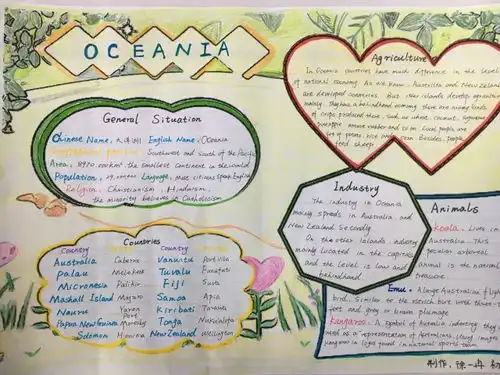 OCEANIA
General Situation
Chinese Name, English Name, Oceania
Southwest and south of the Pacific
Area, the smallest continent in the world
Population, Language, Most citizens speak English
Religion, Christianism, Hinduism,
the minority believes in Catholicism
Countries
Country Country
Australia Vanuatu Port Vila
Palau Tuvalu Funafuti
Micronesia Palikir Fiji Suva
Mashall Island Majuro Samoa Apia
Nauru Yaren Kiribati Tarawa
Port
Papua New Guinea Moresby Tonga
Solomon Honiara New Zealand Wellington
Agriculture
In Oceania countries have much difference in the level
of natural economy. As we know, Australia and New Zealand
are developed countries. But other islands develop agriculture
mainly. They have a behindhand economy. there are many kinds
of crops produced there, such as wheat, coconut, sugarcane
pineapple and so on. Local people eat
lot of Besides, people
feed sheep
Industry
The industry in Oceania
mainly spreads in Australia, and
New Zealand secondly.
In the other islands, industry
mainly located in the capitals
and the level is low and
behindhand.
Animals
Koala. Lives in
Australia. This
peculiar arboreal
animal is the national
treasure
Emu. A large Australian flight
bird. Similar to the ostrich but with three-
feet and grey or brown plumage
Kangaroo. A symbol of Australia industry. They
used as a representation of Australians. Many images
kangaroo in logos found in national sports team
制作：徐一冉 初